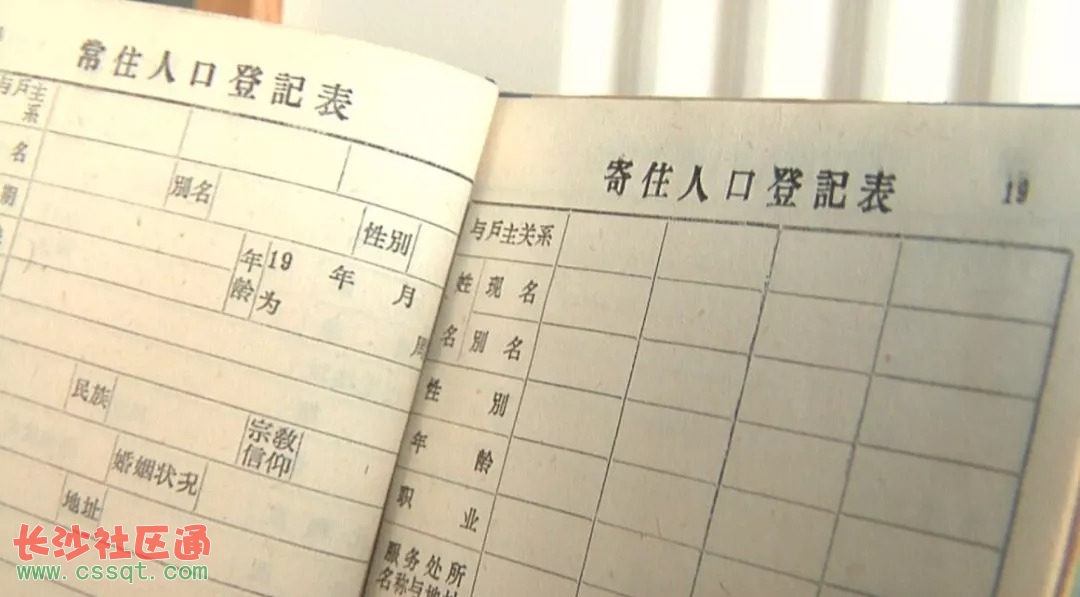 常住人口登記表
与戶主
系
名
别名
性別
期
年齡
19 年 月
为
周
民族
宗教
信仰
婚姻状况
地址
寄住人口登記表
19
与戶主关系
姓名
现名
别名
性别
年龄
职业
服务处所
名称与地址
长沙社区通
www.cssqt.com